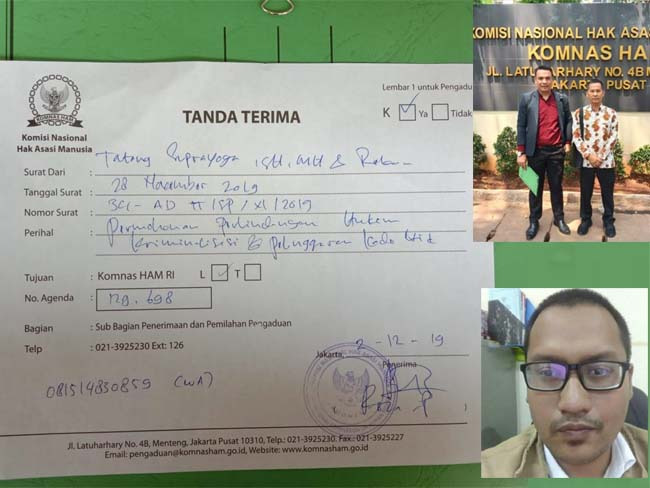 Komisi Nasional
Hak Asasi Manusia
KOMNAS HAM
Lembar 1 untuk Pengadu
TANDA TERIMA
K Ya Tidak
Surat Dari : Tatang Suprayoga, SH, MH & Rekan
Tanggal Surat : 28 November 2019
Nomor Surat : /XI/2019
Perihal : Permohonan Perlindungan Hukum
Kriminalisasi & pelanggaran kode etik
Tujuan : Komnas HAM RI L T
No. Agenda : 129.698
Bagian : Sub Bagian Penerimaan dan Pemilahan Pengaduan
Telp : 021-3925230 Ext: 126
Jakarta, 2-12-19
Penerima
081514830859 (WA)
Jl. Latuharhary No. 4B, Menteng, Jakarta Pusat 10310, Telp.: 021-3925230. Fax.: 021-3925227
Email: pengaduan@komnasham.go.id, Website: www.komnasham.go.id
KOMISI NASIONAL HAK ASAS
KOMNAS HA
JL. LATUHARHARY NO. 4B M
JAKARTA PUSAT